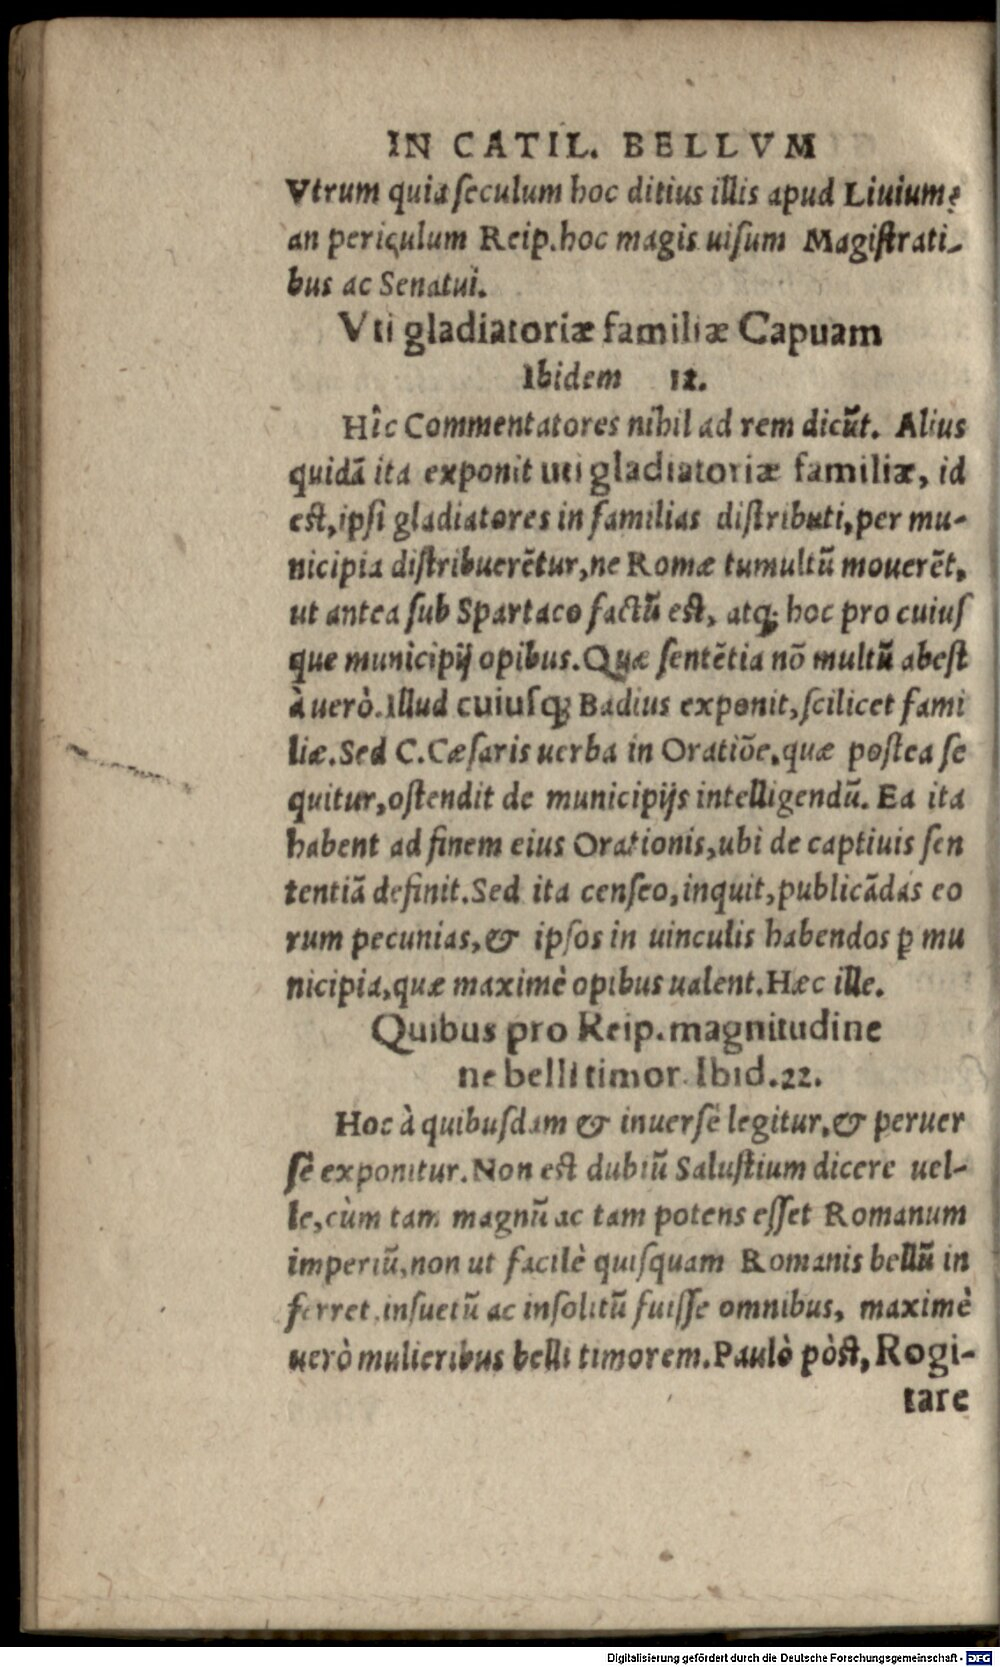 IN CATIL. BELLVM
Vtrum quia ſeculum hoc ditius illis apud Liuium?
an periculum Reip. hoc magis uiſum Magiſtrati-
bus ac Senatui.
Vti gladiatoriæ familiæ Capuam
Ibidem 12.
Hîc Commentatores nihil ad rem dicũt. Alius
quidã ita exponit uti gladiatoriæ familiæ, id
eſt, ipſi gladiatores in familias diſtributi, per mu-
nicipia diſtribuerẽtur, ne Romæ tumultũ mouerẽt,
ut antea ſub Spartaco factũ eſt, atq; hoc pro cuiuſ
que municipij opibus. Quæ ſentẽtia nõ multũ abeſt
à uerò. Illud cuiuſq; Badius exponit, ſcilicet fami
liæ. Sed C. Cæſaris uerba in Oratiõe, quæ poſtea ſe
quitur, oſtendit de municipijs intelligendũ. Ea ita
habent ad finem eius Orationis, ubi de captiuis ſen
tentiã definit. Sed ita cenſeo, inquit, publicãdas eo
rum pecunias, & ipſos in uinculis habendos ꝑ mu
nicipia, quæ maximè opibus ualent. Hæc ille.
Quibus pro Reip. magnitudine
ne belli timor. Ibid. 22.
Hoc à quibuſdam & inuerſè legitur, & peruer
ſè exponitur. Non eſt dubiũ Saluſtium dicere uel-
le, cùm tam magnũ ac tam potens eſſet Romanum
imperiũ, non ut facilè quiſquam Romanis bellũ in
ferret, inſuetũ ac inſolitũ fuiſſe omnibus, maximè
uerò mulieribus belli timorem. Paulò pòſt, Rogi-
tare
Digitalisierung gefördert durch die Deutsche Forschungsgemeinschaft - DFG